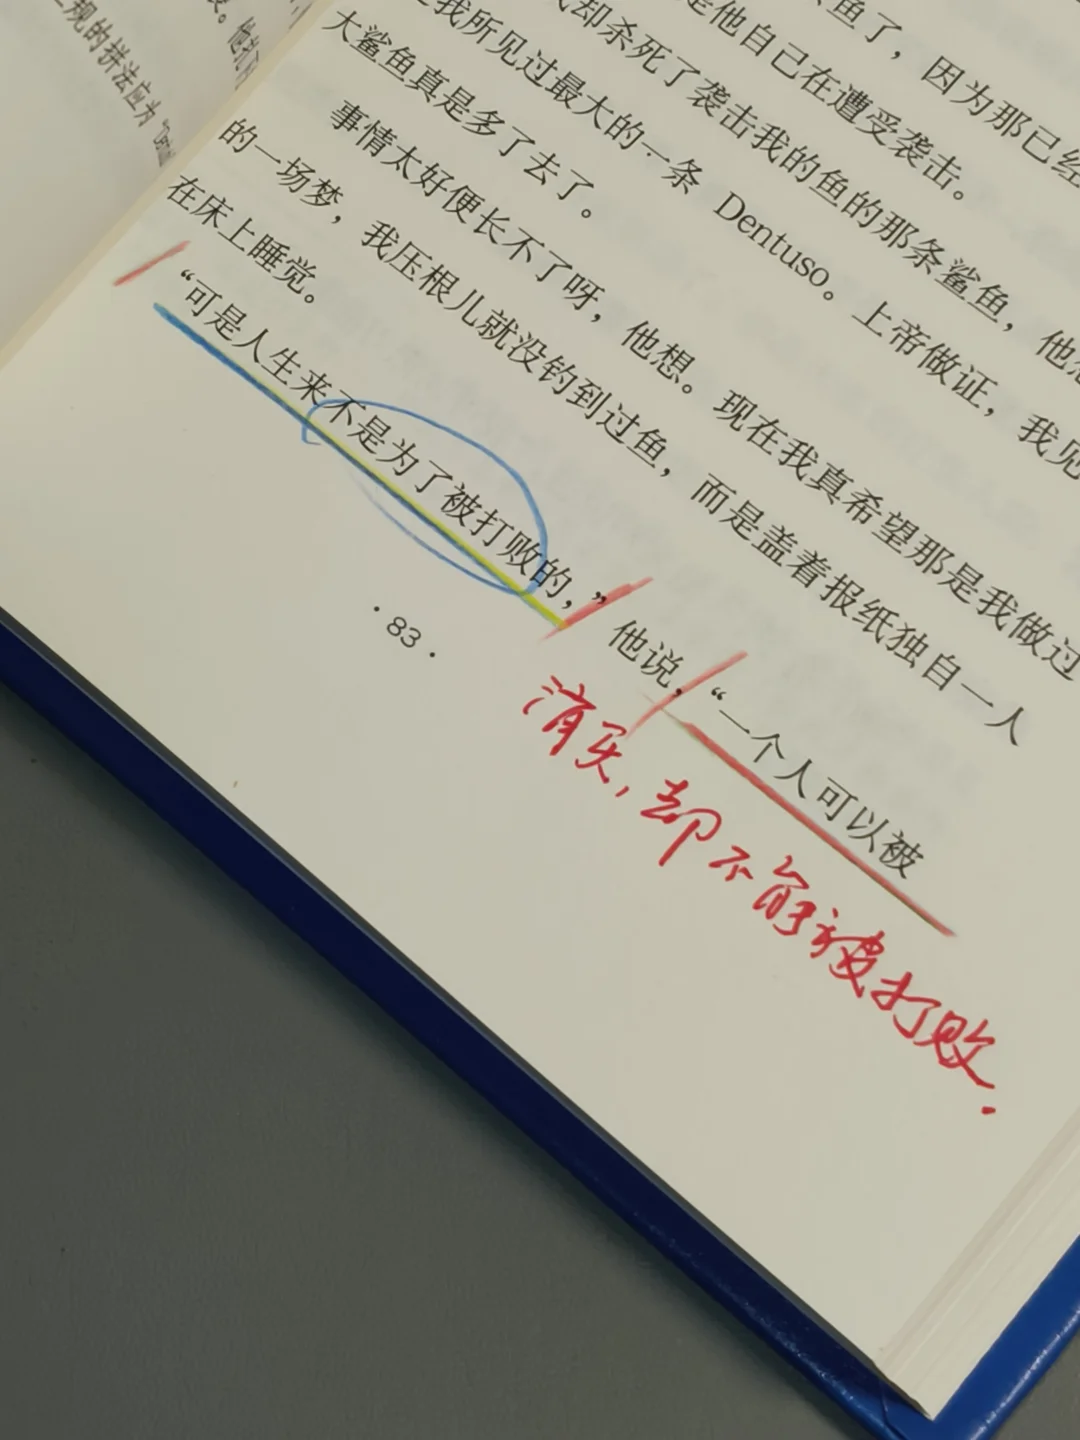 鱼了，因为那已经
是他自己在遭受袭击。
却杀死了袭击我的鱼的那条鲨鱼，他想
我所见过最大的一条 Dentuso。上帝做证，我见
大鲨鱼真是多了去了。
事情太好便长不了呀，他想。现在我真希望那是我做过
的一场梦，我压根儿就没钓到过鱼，而是盖着报纸独自一人
在床上睡觉。
“可是人生来不是为了被打败的，”他说，“一个人可以被
消灭，却不能被打败.
·83·
规的拼法应为